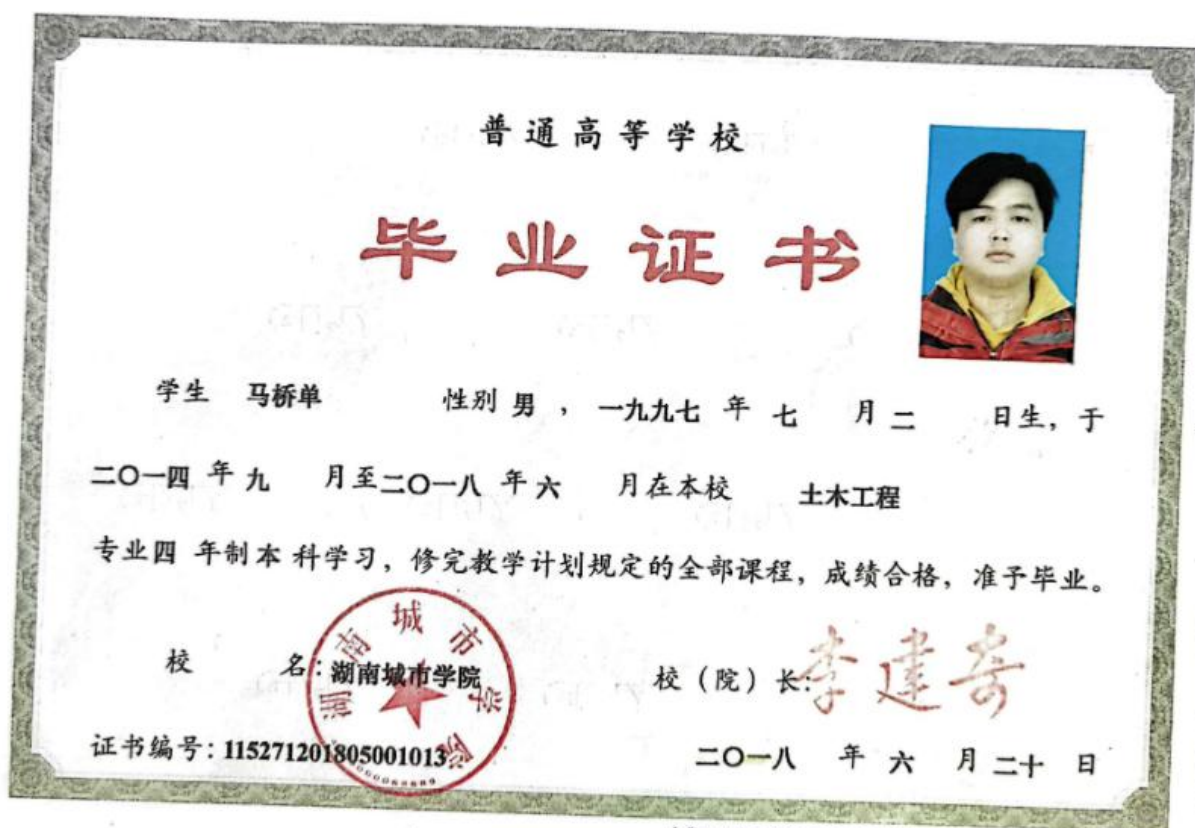 普通高等学校
毕业证书
学生 马桥单 性别 男 ，一九九七 年 七 月 二 日生，于
二〇一四 年 九 月至二〇一八 年 六 月在本校 土木工程
专业四 年制 本 科学习，修完教学计划规定的全部课程，成绩合格，准予毕业。
校 名：湖南城市学院
湖南城市学院
校（院）长：李建奇
证书编号：115271201805001013
二〇一八 年 六 月 二十 日